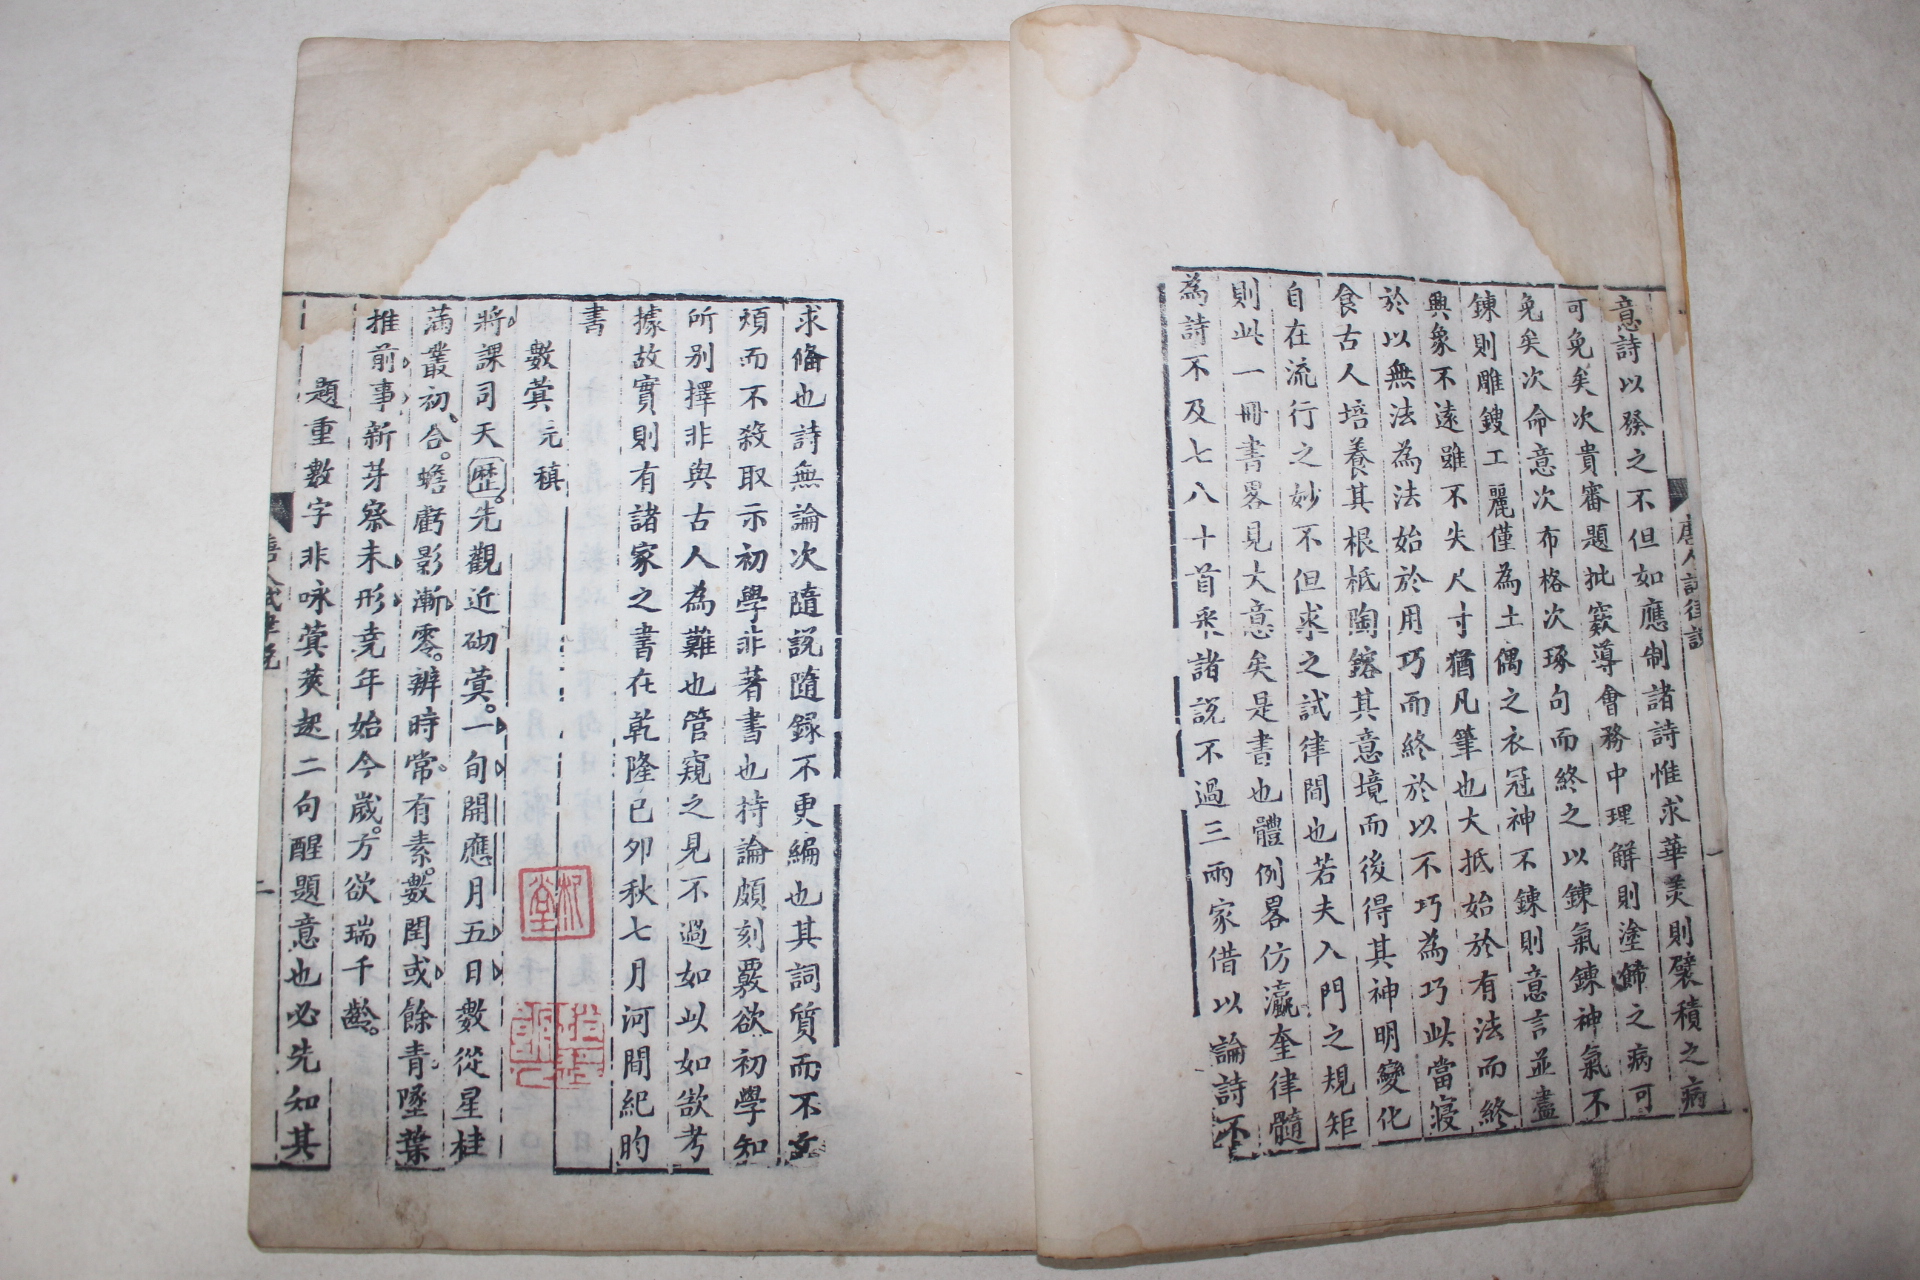 意詩以發之不但如應制諸詩惟求華美則襞積之病
可免矣次貴審題批窾導會務中理解則塗飾之病可
免矣次命意次布格次琢句而終之以鍊氣鍊神氣不
鍊則雕鎪工麗僅為土偶之衣冠神不鍊則意言並盡
興象不遠雖不失尺寸猶凡筆也大抵始於有法而終
於以無法為法始於用巧而終於以不巧為巧此當寢
食古人培養其根柢陶鎔其意境而後得其神明變化
自在流行之妙不但求之試律間也若夫入門之規矩
則此一冊書畧見大意矣是書也體例畧仿瀛奎律髓
為詩不及七八十首采諸說不過三兩家借以論詩不
唐人試律說
一
求備也詩無論次隨說隨錄不更編也其詞質而不文
煩而不殺取示初學非著書也持論頗刻覈欲初學知
所別擇非與古人為難也管窺之見不過如此如欲考
據故實則有諸家之書在乾隆己卯秋七月河間紀昀
書
數蓂 元稹
將課司天歷先觀近砌蓂。一旬開應月五日數從星桂
滿叢初合。蟾虧影漸零。辨時常有素。數閏或餘青墜葉
推前事新芽察未形堯年始今歲。方欲瑞千齡。
題重數字非咏蓂莢起二句醒題意也必先知其
唐人試律說
二